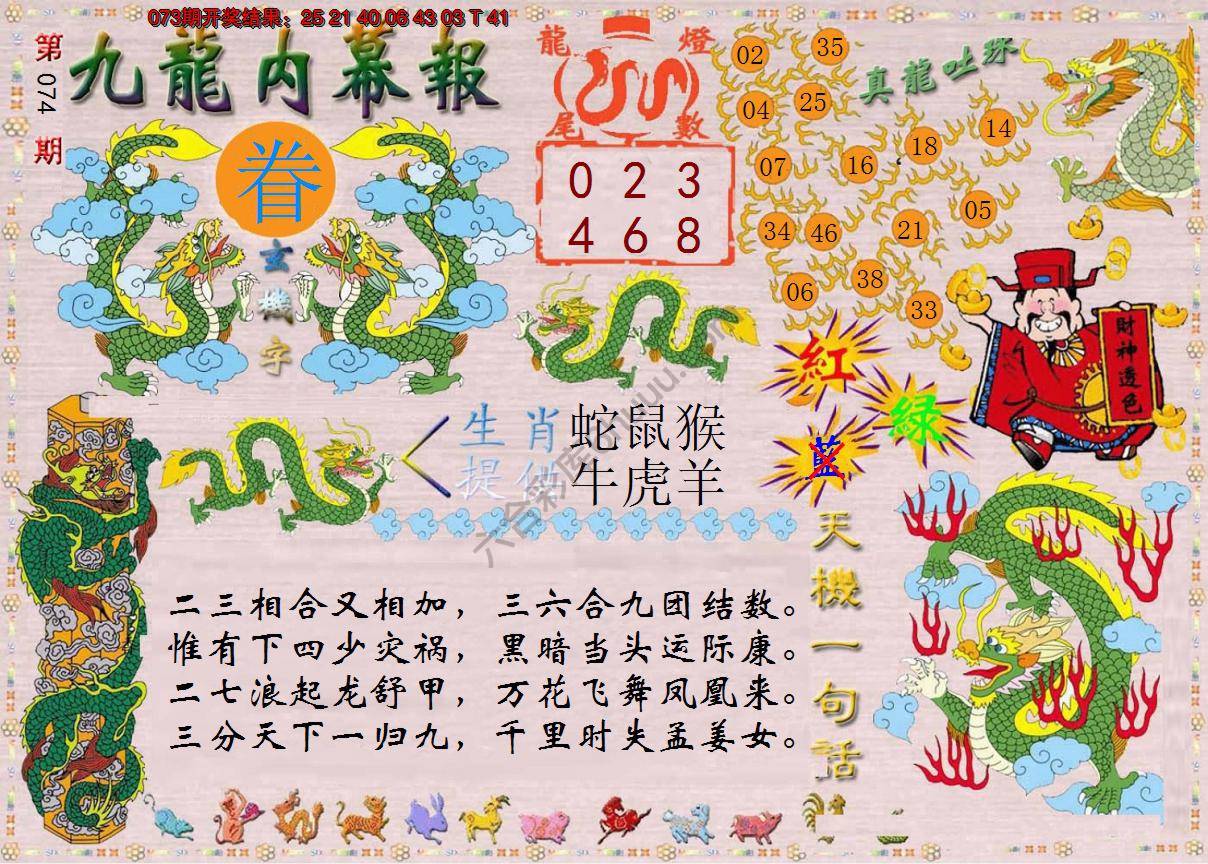 073期开奖结果：25 21 40 06 43 03 T 41
第074期
九龍内幕報
眷
玄機字
龍燈
尾數
0 2 3
4 6 8
真龍吐珠
02 35
04 25
07 16 18 14
34 46 21 05
06 38 33
財神透色
紅
綠
藍
生肖 蛇鼠猴
提供 牛虎羊
天機一句話
二三相合又相加，三六合九团结数。
惟有下四少灾祸，黑暗当头运际康。
二七浪起龙舒甲，万花飞舞凤凰来。
三分天下一归九，千里时失孟姜女。